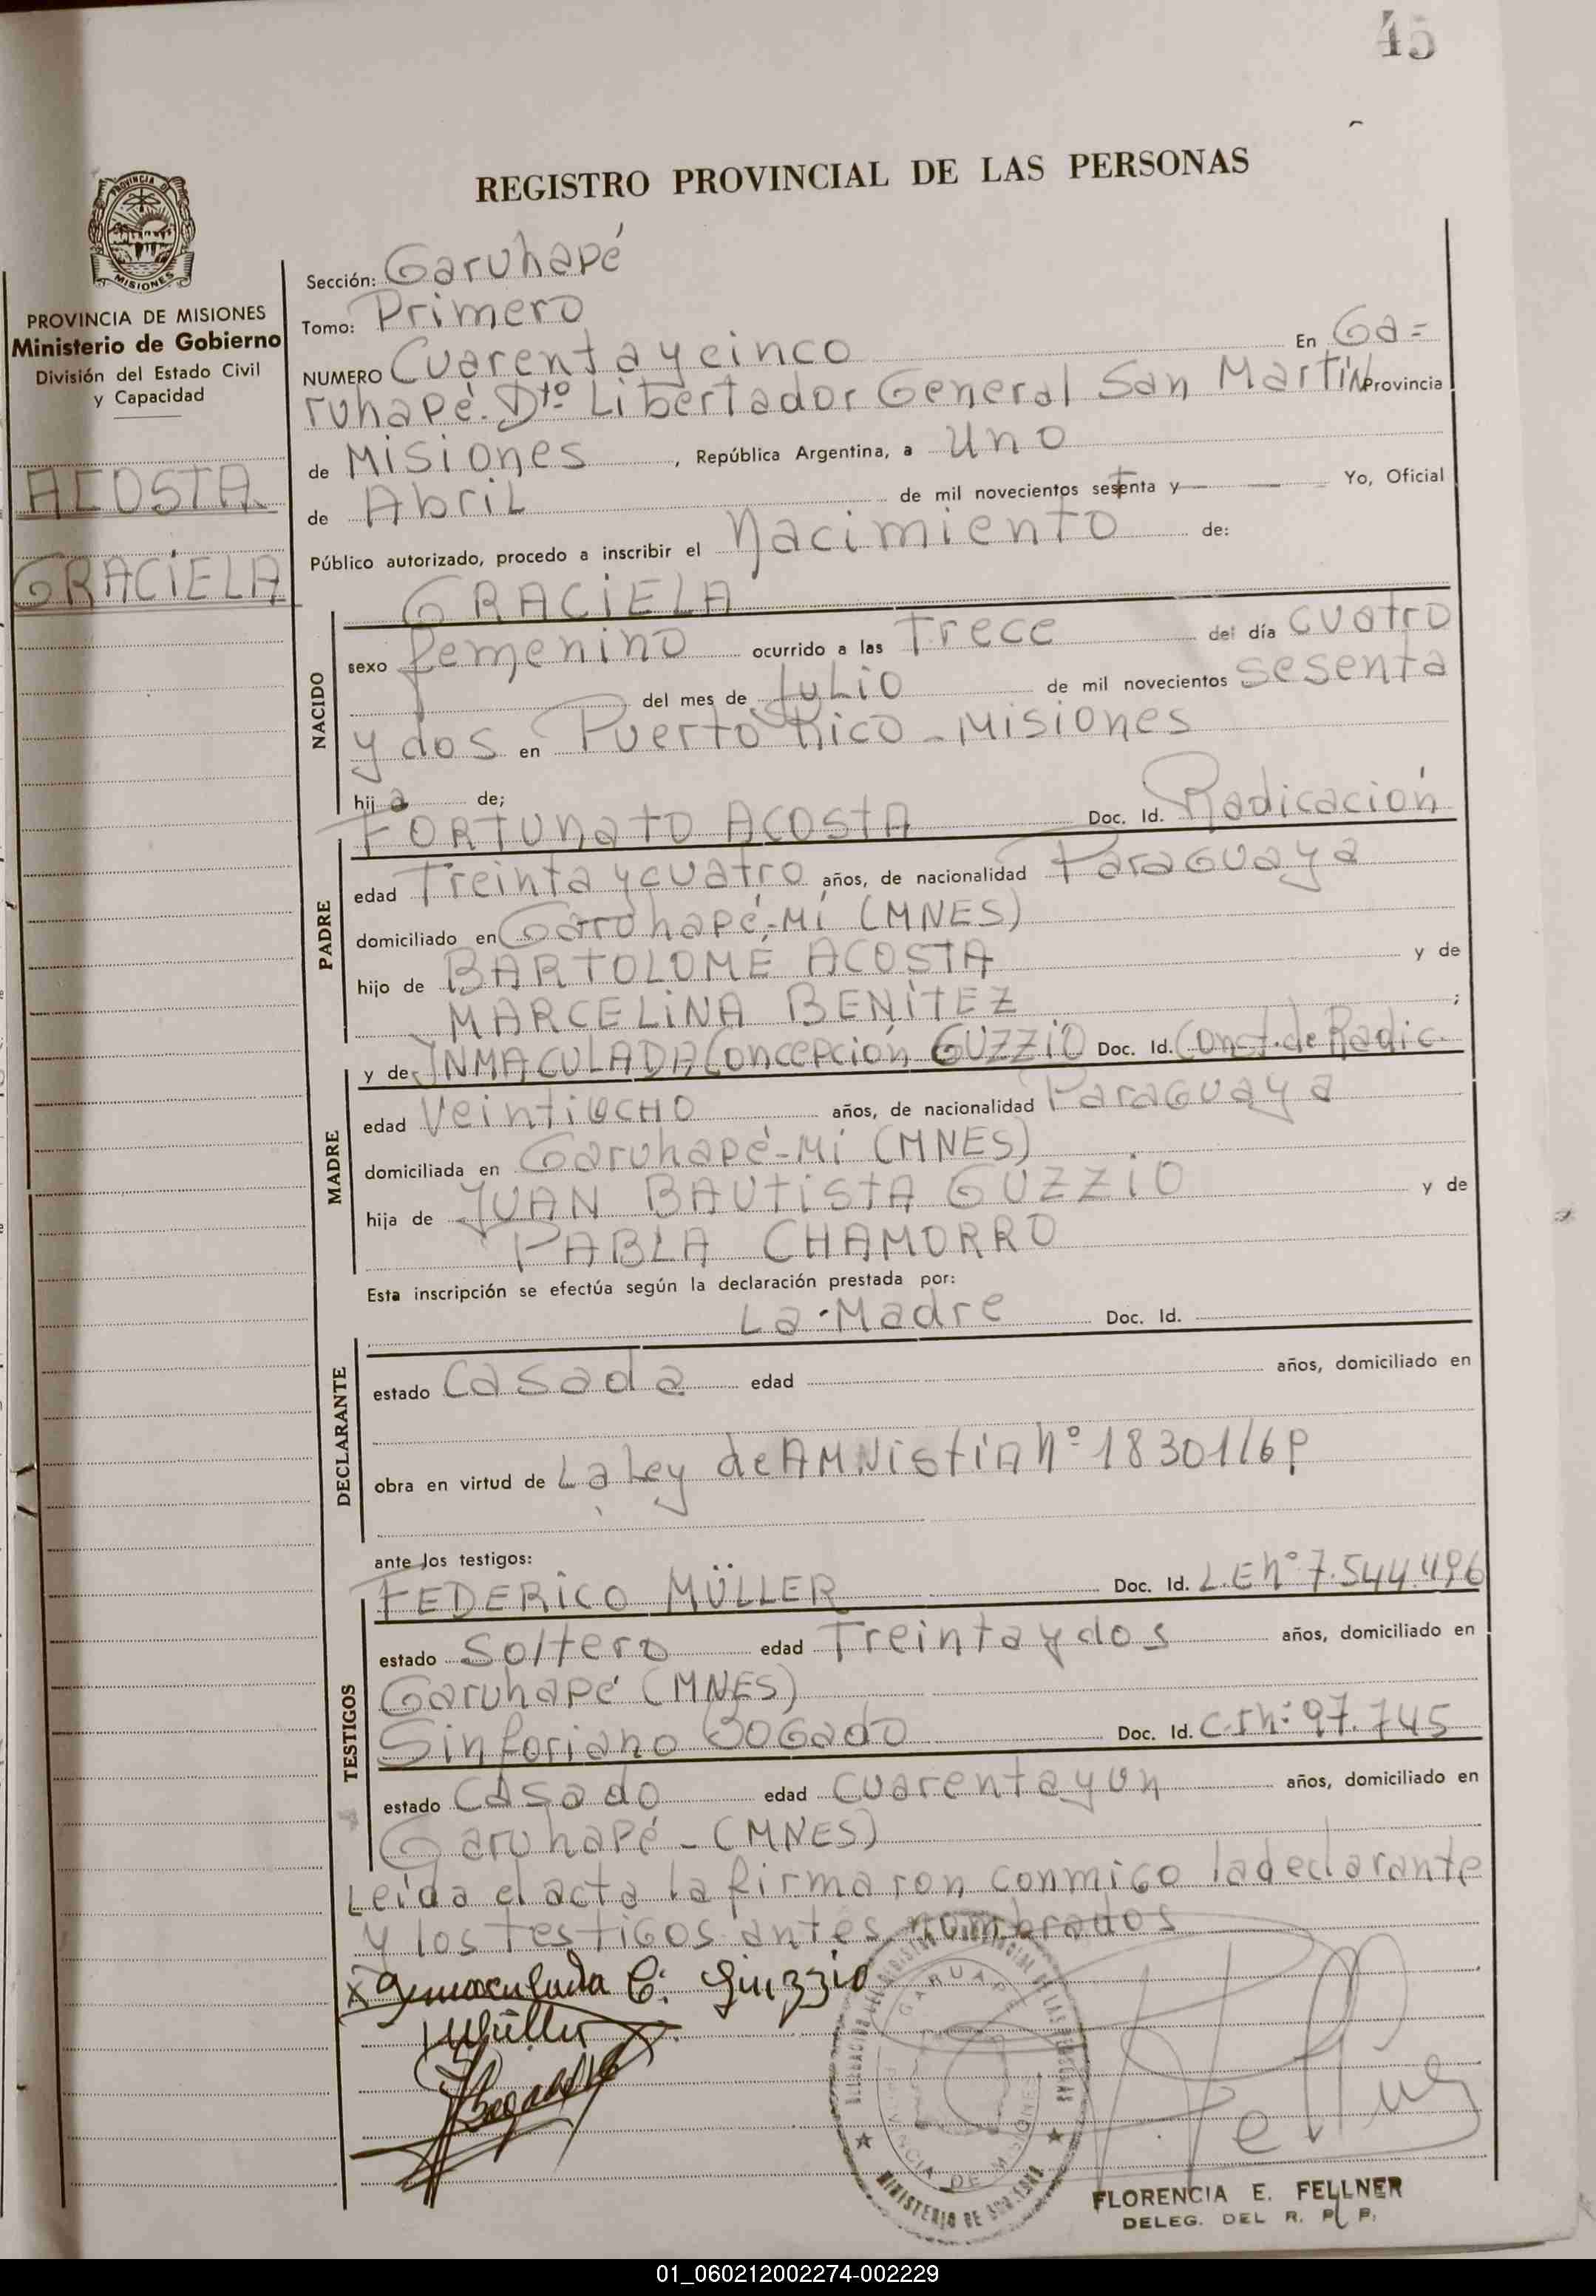 45
REGISTRO PROVINCIAL DE LAS PERSONAS
PROVINCIA DE MISIONES
PROVINCIA DE MISIONES
Ministerio de Gobierno
División del Estado Civil
y Capacidad
ACOSTA
GRACIELA
Sección: Garuhapé
Tomo: Primero
NUMERO Cuarenta y cinco En Ga=
ruhapé. Dto. Libertador General San Martín Provincia
de Misiones, República Argentina, a uno
de Abril de mil novecientos setenta y — Yo, Oficial
Público autorizado, procedo a inscribir el Nacimiento de:
NACIDO
GRACIELA
sexo femenino ocurrido a las Trece del día cuatro
del mes de Julio de mil novecientos sesenta
y dos en Puerto Rico - Misiones
hija de;
PADRE
FORTUNATO ACOSTA Doc. Id. Radicación
edad Treinta y cuatro años, de nacionalidad Paraguaya
domiciliado en Garuhapé-Mí (MNES)
hijo de BARTOLOMÉ ACOSTA y de
MARCELINA BENÍTEZ ;
MADRE
y de INMACULADA Concepción GUZZIO Doc. Id. Const. de Radic.
edad Veintiocho años, de nacionalidad Paraguaya
domiciliada en Garuhapé-Mí (MNES)
hija de JUAN BAUTISTA GUZZIO y de
PABLA CHAMORRO
Esta inscripción se efectúa según la declaración prestada por:
DECLARANTE
La Madre Doc. Id.
estado Casada edad años, domiciliado en
obra en virtud de La Ley de AMNistíA Nº 18301/69
ante los testigos:
TESTIGOS
FEDERICO MÜLLER Doc. Id. L.E nº 7.544.496
estado Soltero edad Treinta y dos años, domiciliado en
Garuhapé (MNES)
Sinforiano Bogado Doc. Id. C.I nº 97.745
estado Casado edad cuarenta y un años, domiciliado en
Garuhapé - (MNES)
Leída el acta la firmaron conmigo la declarante
y los testigos antes nombrados
x Inmaculada C. Guzzio
Müller
Bogado
DELEGACION DEL REGISTRO PROVINCIAL DE LAS PERSONAS
GARUAPE
PROVINCIA DE MISIONES
MINISTERIO DE GOBIERNO
Fellner
FLORENCIA E. FELLNER
DELEG. DEL R. P. P.
01_060212002274-002229